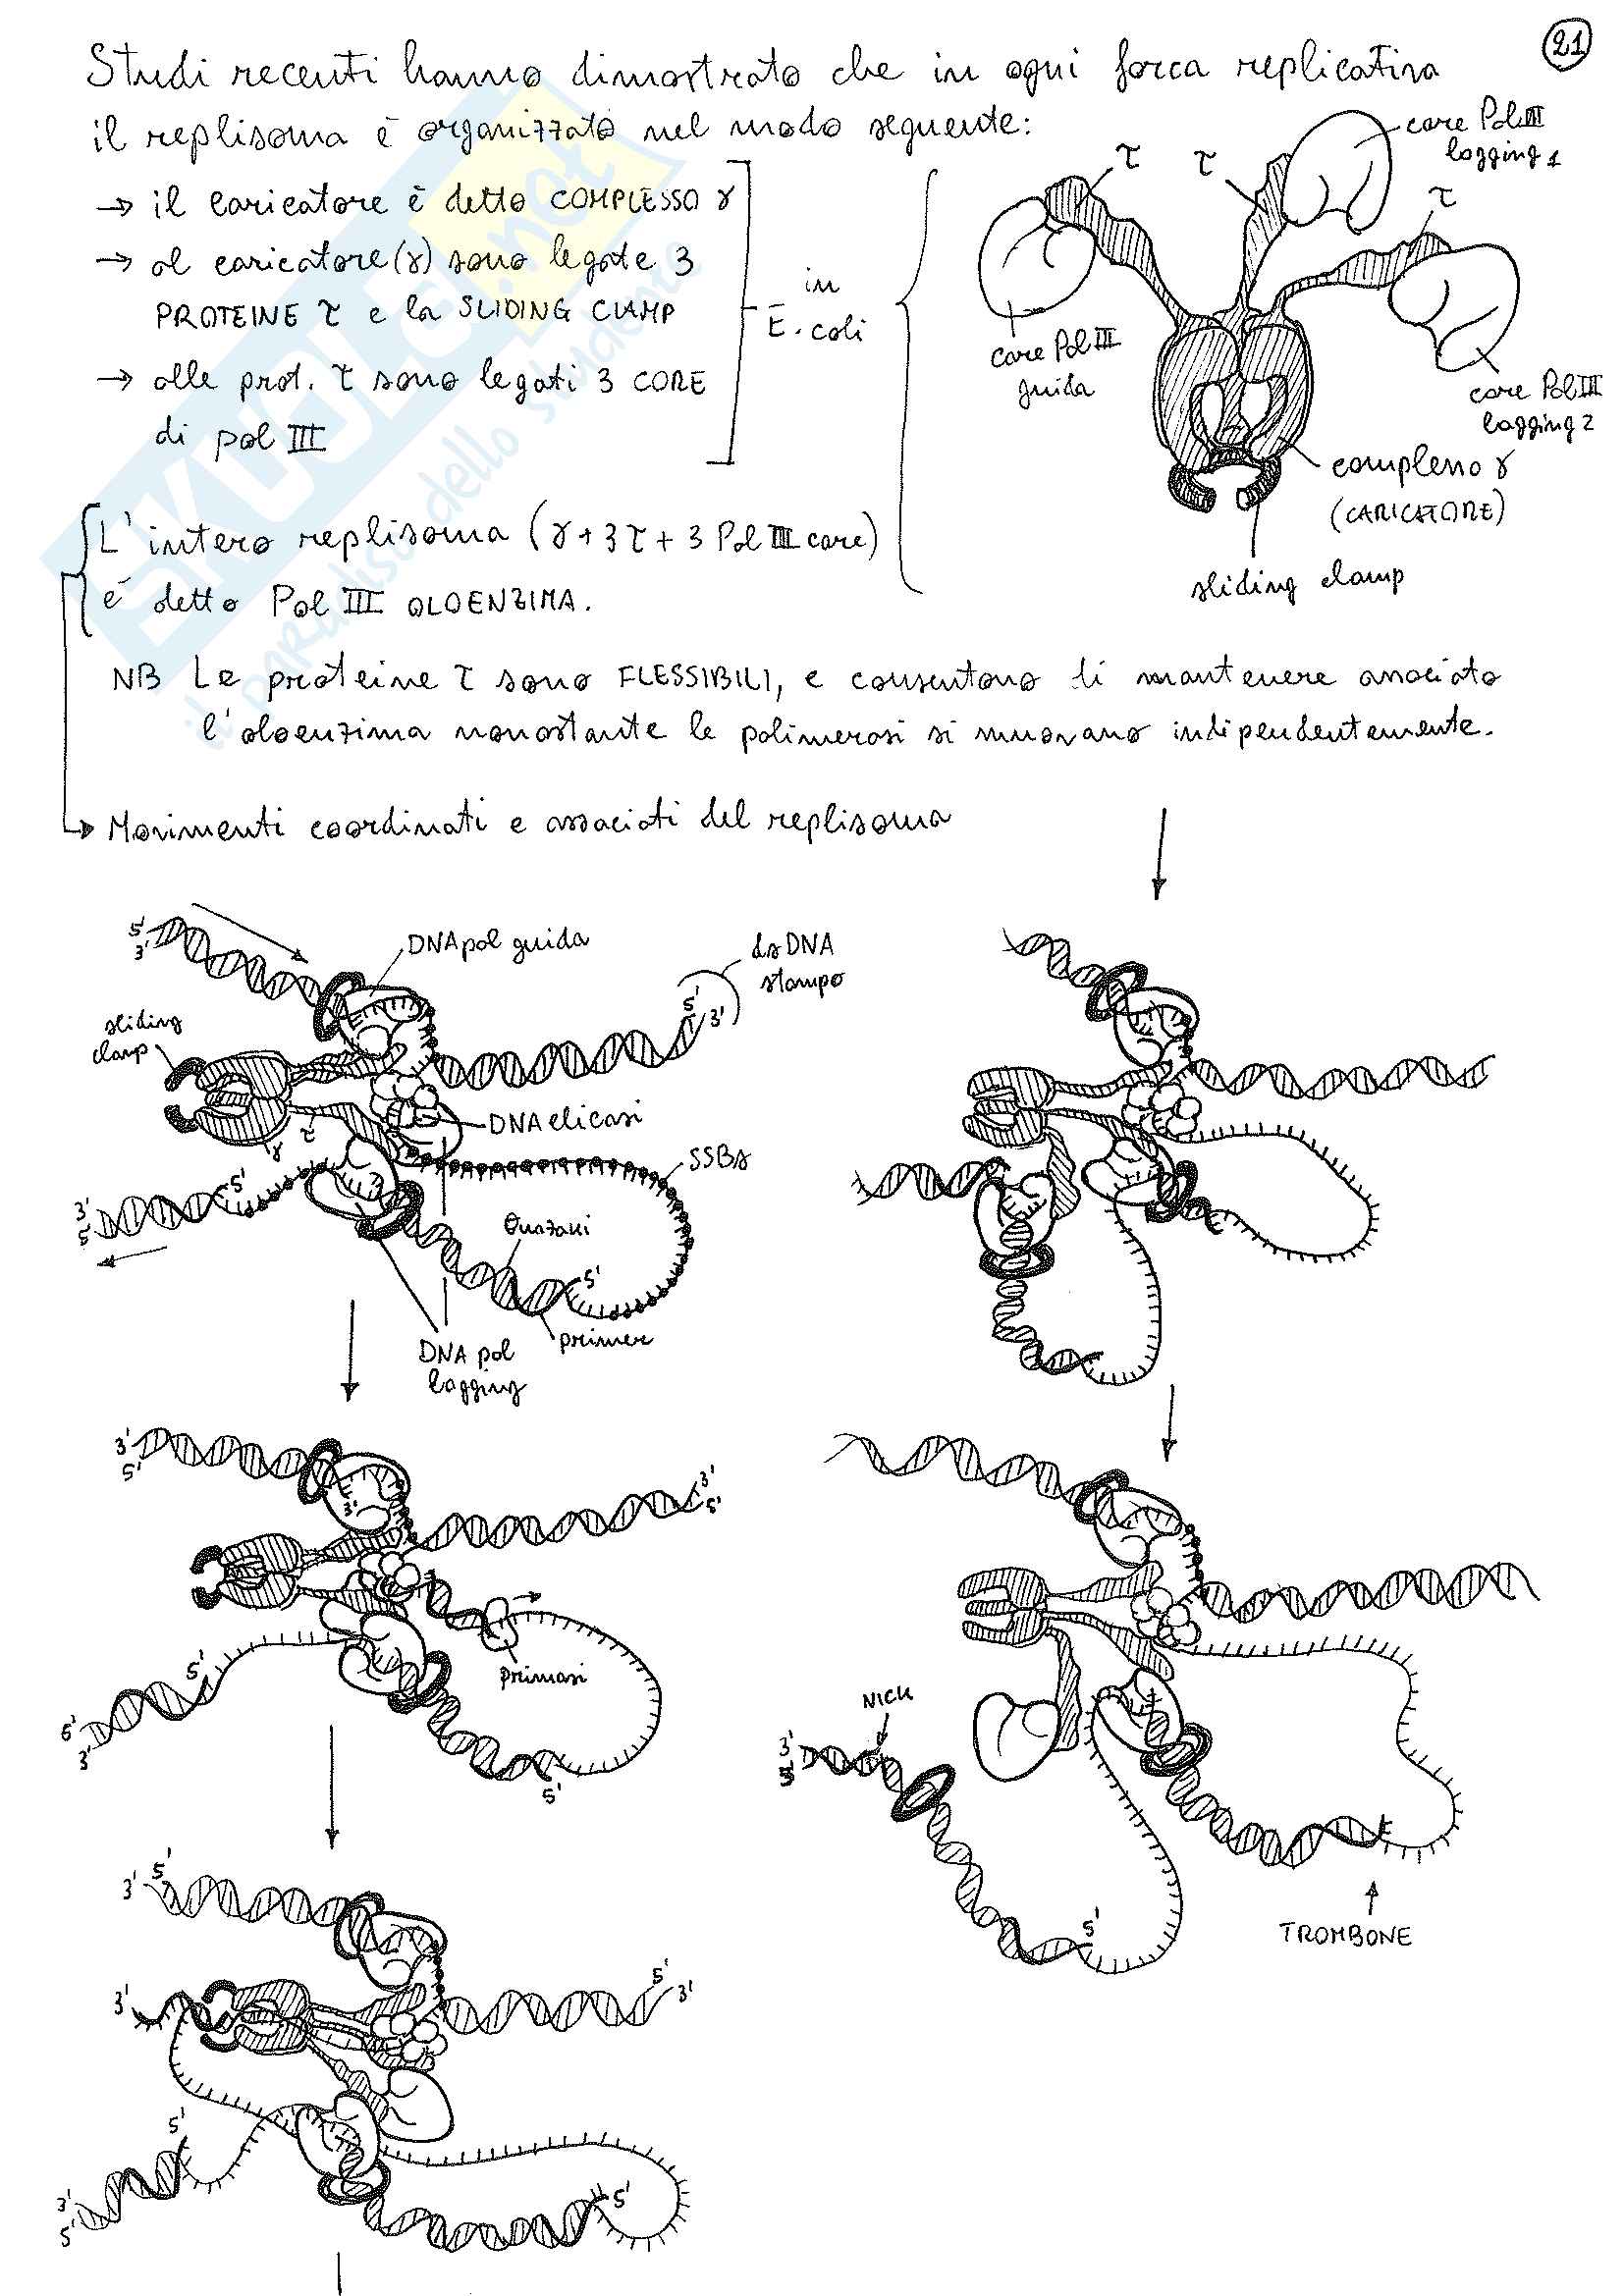 21
Studi recenti hanno dimostrato che in ogni forca replicativa
il replisoma è organizzato nel modo seguente:
→ il caricatore è detto COMPLESSO γ
→ al caricatore (γ) sono legate 3
PROTEINE τ e la SLIDING CLAMP
→ alle prot. τ sono legati 3 CORE
di pol III
in
E. coli
τ
τ
τ
core Pol III
lagging 1
core Pol III
guida
core Pol III
lagging 2
complesso γ
(CARICATORE)
sliding clamp
L'intero replisoma (γ + 3 τ + 3 Pol III core)
è detto Pol III OLOENZIMA.
NB Le proteine τ sono FLESSIBILI, e consentono di mantenere associato
l'oloenzima nonostante le polimerasi si muovano indipendentemente.
→ Movimenti coordinati e associati del replisoma
5'
3'
DNA pol guida
dsDNA
stampo
5'
3'
sliding
clamp
DNA elicasi
γ
τ
SSBs
5'
3'
5'
Okazaki
5'
primer
DNA pol
lagging
3'
5'
3'
3'
5'
primasi
5'
5'
3'
5'
3'
5'
5'
3'
3'
5'
5'
3'
5'
NICK
3'
5'
5'
TROMBONE
SKUOLA.net
il paradiso dello studente